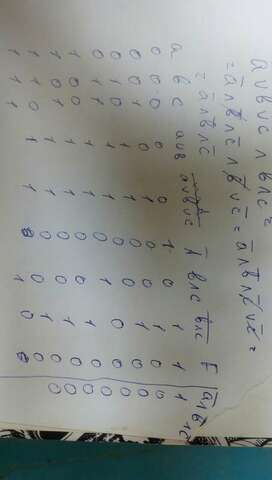 a∨b∨c ∧ b∧c =
= a̅∧b̅∧c̅∧b̅∨c̅ = a̅∧b̅∧c̅∨c̅ =
= a̅∧b̅∧c̅
a b c a∨b a∨b∨c b∧c b∧c F a̅∧b̅∧c̅
0 0 0 0 0 1 0 1 1 1
0 0 1 0 1 0 0 1 0 0
0 1 0 1 1 0 0 1 0 0
0 1 1 1 1 0 1 0 0 0
1 0 0 1 1 0 0 1 0 0
1 0 1 1 1 0 0 1 0 0
1 1 0 1 1 0 0 1 0 0
1 1 1 1 1 0 1 0 0